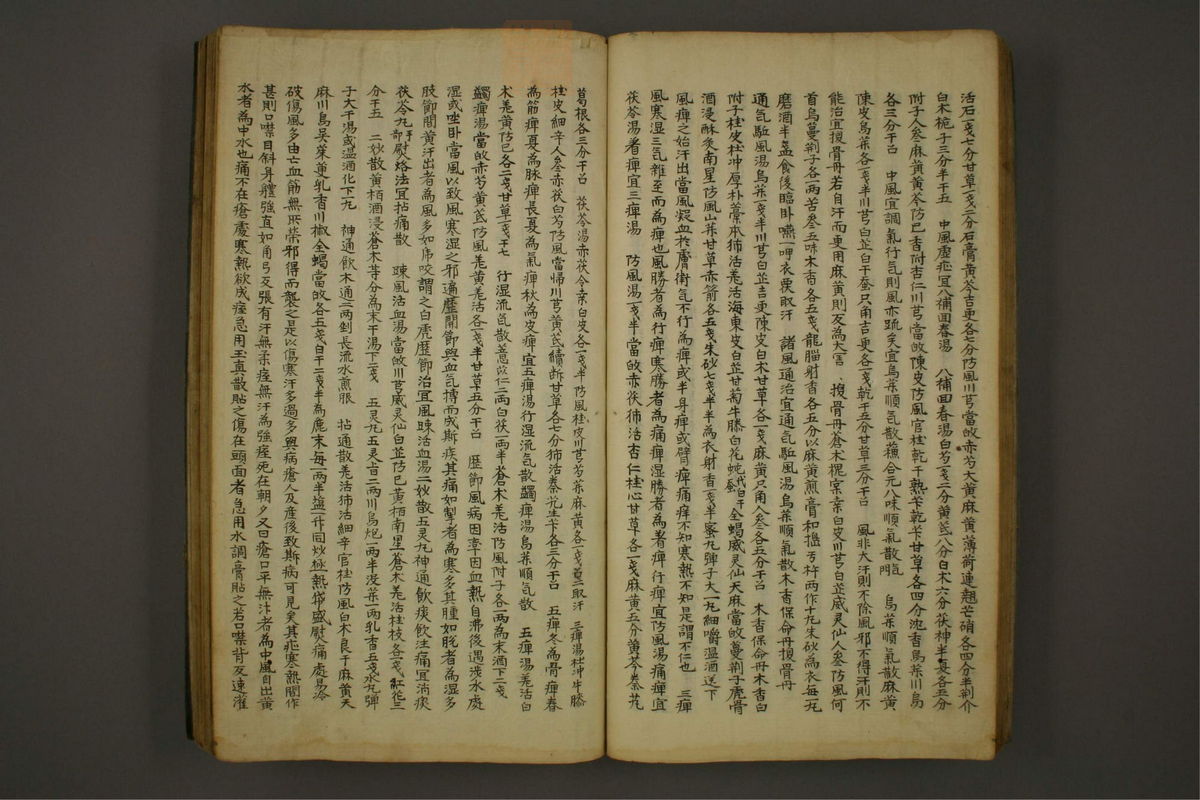 活石一戔七分甘草一戔二分石膏黃芩吉更各七分防風川芎當皈赤芍大黃麻黃薄荷連翹芒硝各四分半荊介
白朮梔子三分半干五 中風虛恇宜八補回春湯 八補回春湯白芍一戔二分黃芪八分白朮六分茯神半夏各五分
附子人參麻黃黃芩防己香附杏仁川芎當皈陳皮防風官桂乾干熟芐乾芐甘草各四分沈香烏菜川烏
各三分干召 中風宜調氣行氣則風亦疏矣宜烏菜順氣散蕉合元八味順氣散 烏菜順氣散麻黃
陳皮烏菜各一戔半川芎白芷白干蚕只角吉更各一戔乾干五分甘草三分干召 風非大汗則不除風邪不得汗則不
能治宜搜骨丹若自汗而更用麻黃則反為大害 搜骨丹蒼朮槐宲桒白皮川芎白芷威灵仙人參防風何
首烏蔓荊子各一兩苦參五味木香各五戔龍腦射香各五分以麻黃煎膏和搗万杵兩作十九朱砂為衣每一丸
磨酒半盞食後臨卧嚥一呷衣褁取汗 諸風通治宜通氣駈風湯烏菜順氣散木香保命丹搜骨丹
通氣駈風湯烏菜一戔半川芎白芷吉更陳皮白朮甘草各一戔麻黃只角人參各五分干召 木香保命丹木香白
附子桂皮杜冲厚朴藁本烋活羌活海東皮白芷甘菊牛膝白花蛇全蝎威灵仙天麻當皈蔓荊子虎骨
酒浸酥炙南星防風山茱甘草赤箭各五戔朱砂七戔半半為衣射香一戔半蜜丸彈子大一丸細嚼温酒送下
風痺之始汗出當風凝血於膚衛气不行為痺或半身痺或臂痺痛痒不知寒熱不知是謂不仁也 三痺
風寒湿三氣雜至而為痺也風勝者為行痺寒勝者為痛痺湿勝者為着痺行痺宜防風湯痛痺宜
茯苓湯着痺宜三痺湯 防風湯一戔半當皈赤茯烋活杏仁桂心甘草各一戔麻黃五分黃芩秦艽
葛根各三分干召 茯苓湯赤茯令桒白皮各一戔半防風桂皮川芎芍菜麻黃各一戔取汗 三痺湯杜冲牛膝
桂皮細辛人參赤茯白芍防風當帰川芎黃芪續斷甘草各七分烋活秦艽生芐各三分干召 五痺冬為骨痺春
為筋痺夏為脉痺長夏為氣痺秋為皮痺宜五痺湯行湿流气散蠲痺湯烏菜順气散 五痺湯羌活白
朮羌黃防己各二戔甘草一戔干七 行湿流气散薏苡仁二兩白茯一兩半蒼朮羌活防風附子各一兩為末酒下二戔
蠲痺湯當皈赤芍黃芪防風羌黃羌活各一戔半甘草五分干召 歷節風病因牽因血熱自沸後遇浅水處
湿或坐卧當風以致風寒湿之邪遍歷關節與血气搏而成斯疾其痛如掣者為寒多其腫如脫者為湿多
肢節間黃汗出者為風多如虎咬謂之白虎歷節治宜風踈活血湯二妙散五灵丸神通飲痰飲注痛宜淌痰
茯苓丸尉烙法宜拈痛散 踈風活血湯當皈川芎威灵仙白芷防已黃栢南星蒼朮羌活桂枝各一戔紅花三
分干五 二妙散黃栢酒浸蒼朮等分為末干湯下一戔 五灵丸五灵二兩川烏炮一兩半沒菜一兩乳香五戔水丸彈
子大干湯或温酒化下一丸 神通飲木通二兩剉長流水煎服 拈通散羌活烋活細辛官桂防風白朮良干麻黃天
麻川烏吳茱更乳香川椒全蝎當皈各五戔白干二戔半為麁末每一兩半盐一升同炒極熱帒盛熨痛處易冷
破傷風多由亡血筋無所榮邪得而襲之是以傷寒汗多過多與病瘡人及產後致斯病可見矣其恇寒熱間作
甚則口噤目斜身體強直如角弓反張有汗無柔痓無汗為強痓死在朝夕又曰瘡口平無汁者為中風自出黃
水者為中水也痛不在瘡處寒熱欲成痓急用玉真散貼之傷在頭面者急用水調膏貼之若口噤背反連灌